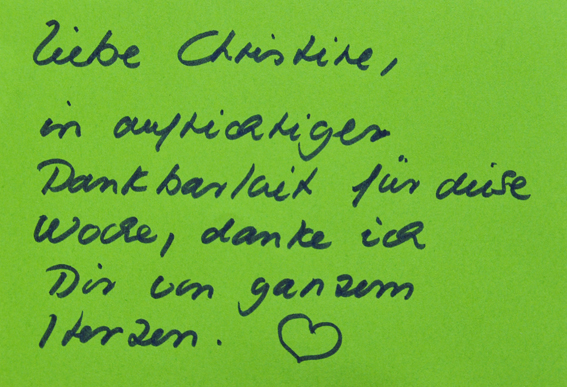 Liebe Christine,
in aufrichtiger
Dankbarkeit für diese
Woche, danke ich
Dir von ganzem
Herzen.